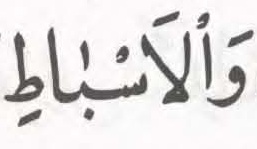 وَٱلْاَسْبَاطِ